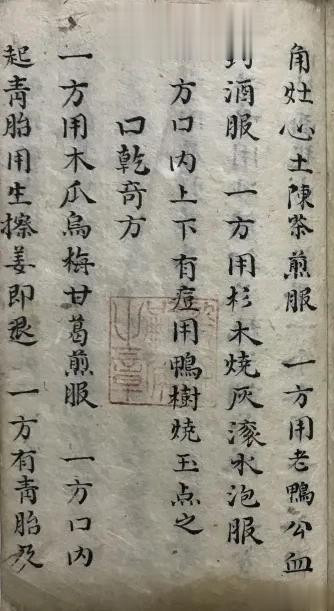 角灶心土陳茶煎服　一方用老鴨公血
酒服　一方用杉木燒灰滾水泡服
方口內上下有痘用鴨樹燒玉点之
口乾奇方
一方用木瓜烏梅甘葛煎服　一方口內
起青胎用生擦姜即退　一方有青胎及